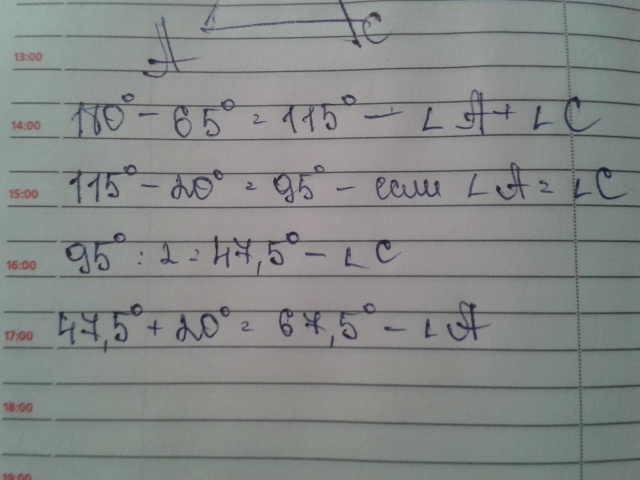 A C
13:00
14:00 180° - 65° = 115° — ∟A + ∟C
15:00 115° - 20° = 95° - если ∟A = ∟C
16:00 95° : 2 = 47,5° - ∟C
17:00 47,5° + 20° = 67,5° - ∟A
18:00
19:00